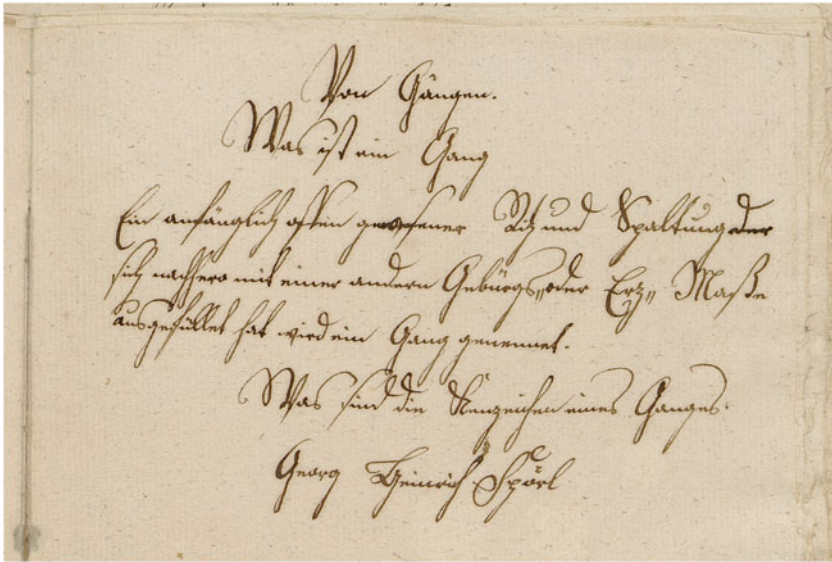 Von Gängen.
Was ist ein Gang
Ein anfänglich offen gewesener Ritz und Spaltung der
sich nachhero mit einer andern Gebürgs„ oder Erz„ Maße
ausgefüllet hat wird ein Gang genennet.
Was sind die Kenzeichen eines Ganges.
Georg Heinrich Spörl